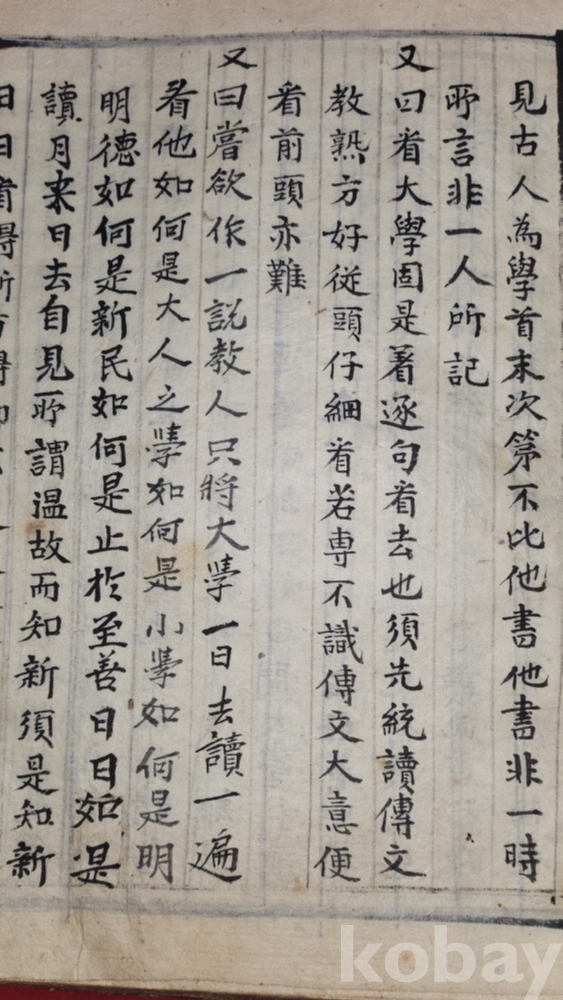 見古人為學首末次第不比他書他書非一時
所言非一人所記
又曰看大學固是着逐句看去也須先統讀傳文
教熟方好從頭仔細看若專不識傳文大意便
看前頭亦難
又曰嘗欲作一說教人只將大學一日去讀一遍
看他如何是大人之學如何是小學如何是明
明德如何是新民如何是止於至善日日如是
讀月來日去自見所謂温故而知新須是知新
kobay